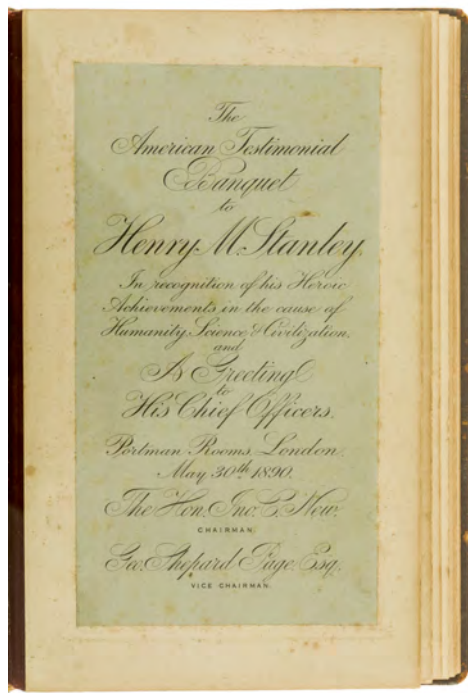 The
American Testimonial
Banquet
to
Henry M. Stanley.
In recognition of his Heroic
Achievements in the cause of
Humanity, Science & Civilization.
and
As Greeting
to
His Chief Officers.
Portman Rooms, London.
May 30th 1890.
The Hon. Jno. C. New.
CHAIRMAN.
Geo. Shepard Page. Esq.
VICE CHAIRMAN.